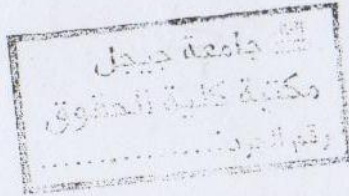 جامعة جيجل
مكتبة كلية الحقوق
رقم الجرد:..................